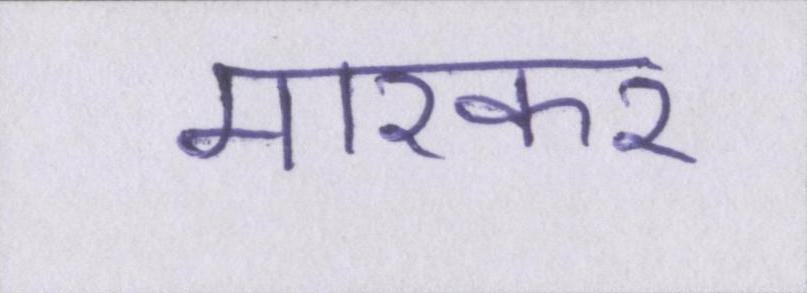 मारकर